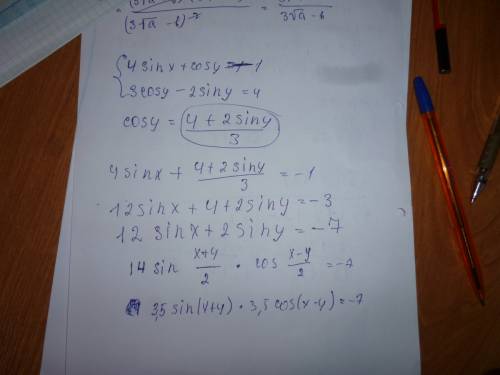 (3√a - b)² = 3√a - b
{ 4 sinx + cosy = -1
{ 3cosy - 2siny = 4
cosy = (4 + 2siny)/3
4 sinx + (4 + 2siny)/3 = -1
12 sinx + 4 + 2siny = -3
12 sinx + 2siny = -7
14 sin (x+y)/2 · cos (x-y)/2 = -7
3,5 sin(x+y) · 3,5 cos(x-y) = -7